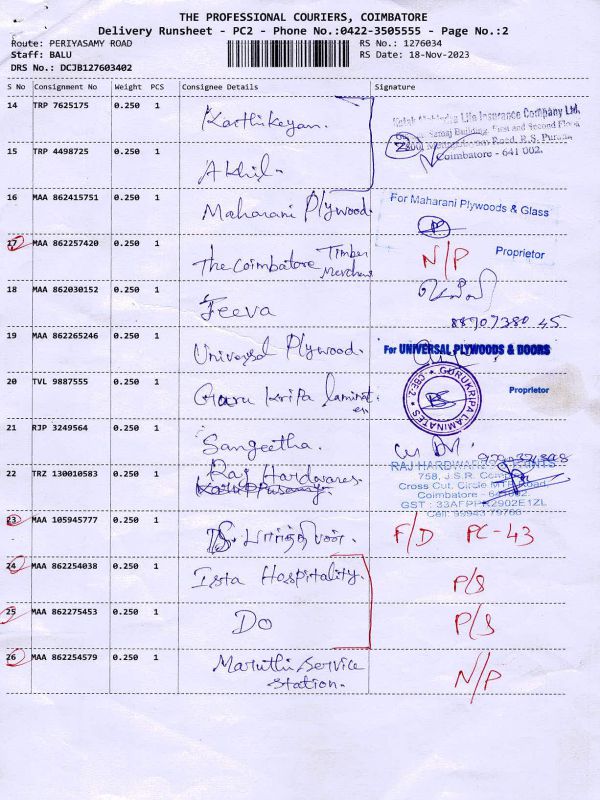 THE PROFESSIONAL COURIERS, COIMBATORE
Delivery Runsheet - PC2 - Phone No.:0422-3505555 - Page No.:2
Route: PERIYASAMY ROAD RS No.: 1276034
Staff: BALU RS Date: 18-Nov-2023
DRS No.: DCJB127603402
S No Consignment No Weight PCS Consignee Details Signature
14 TRP 7625175 0.250 1 Karthikeyan.
Kotak Mahindra Life Insurance Company Ltd.
Building, First and Second Floor,
Road, R.S. Puram,
Coimbatore - 641 002.
15 TRP 4498725 0.250 1 Akhil
16 MAA 862415751 0.250 1 Maharani Plywood.
For Maharani Plywoods & Glass
Proprietor
17 MAA 862257420 0.250 1 The Coimbatore Timber Merchant N/P
18 MAA 862030152 0.250 1 Jeeva
88707380 45
19 MAA 862265246 0.250 1 Universal Plywood.
For UNIVERSAL PLYWOODS & DOORS
Proprietor
20 TVL 9887555 0.250 1 Guru Kripa laminates
GURUKRIPA LAMINATES CBE-2
21 RJP 3249564 0.250 1 Sangeetha.
22 TRZ 130010583 0.250 1 Raj Hardwares.
RAJ HARDWARE
758, J.S.R. Complex
Cross Cut, Circle MTP Road,
Coimbatore - 641002.
GST : 33AFPPK2902E1ZL
Cell: 99943 79766
23 MAA 105945777 0.250 1 F/D PC-43
24 MAA 862254038 0.250 1 Ista Hospitality. P/S
25 MAA 862275453 0.250 1 Do P/S
26 MAA 862254579 0.250 1 Maruthi Service N/P
Station.